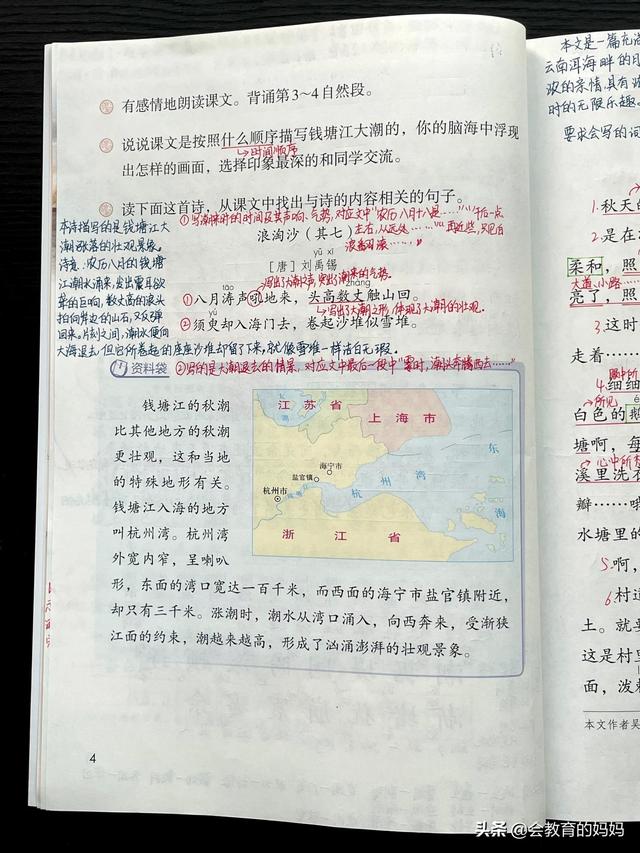 有感情地朗读课文。背诵第3~4自然段。
说说课文是按照什么顺序描写钱塘江大潮的，你的脑海中浮现
↳时间顺序
出怎样的画面，选择印象最深的和同学交流。
读下面这首诗，从课文中找出与诗的内容相关的句子。
①写潮来时的时间及其声响、气势，对应文中“农历八月十八是……”“午后一点
左右，从远处……”“再近些，只见白
浪翻滚……”
浪淘沙（其七）
yǔ xī
［唐］刘禹锡
写出了大潮之声，突出潮来的气势。
tāo
zhàng
①八月涛声吼地来，头高数丈触山回。
↳写出了大潮之形，体现了大潮的壮观。
yú
②须臾却入海门去，卷起沙堆似雪堆。
本诗描写的是钱塘江大
潮涨落的壮观景象。
诗意：农历八月的钱塘
江潮水涌来，发出震耳欲
聋的巨响，数丈高的浪头
拍向岸边的山石，又被弹
回来。片刻之间，潮水便向
大海退去，但它所卷起的座座沙堆却留了下来，就像雪堆一样洁白无瑕。
②写的是大潮退去的情景，对应文中最后一段中“霎时，潮头奔腾西去……”
资料袋
钱塘江的秋潮
比其他地方的秋潮
更壮观，这和当地
的特殊地形有关。
钱塘江入海的地方
叫杭州湾。杭州湾
外宽内窄，呈喇叭
形，东面的湾口宽达一百千米，而西面的海宁市盐官镇附近，
却只有三千米。涨潮时，潮水从湾口涌入，向西奔来，受渐狭
江面的约束，潮越来越高，形成了汹涌澎湃的壮观景象。
江苏省
上海市
海宁市
盐官镇
杭州市
杭州湾
东海
浙江省
4
本文是一篇充满
云南洱海畔的月
浓的亲情，具有浓
时的无限乐趣。
要求会写的词
1.秋天的
2.是在
柔和，照
大道、小路
亮了，照
3.这时
走着……
4.细细
所见
白色的鹅
塘啊，每
心中所想
溪里洗衣
瓣……哦
水塘里的
5.啊，
6.村道
土。就里
这是村里
面，泼剌
本文作者吴
头条 @会教育的妈妈